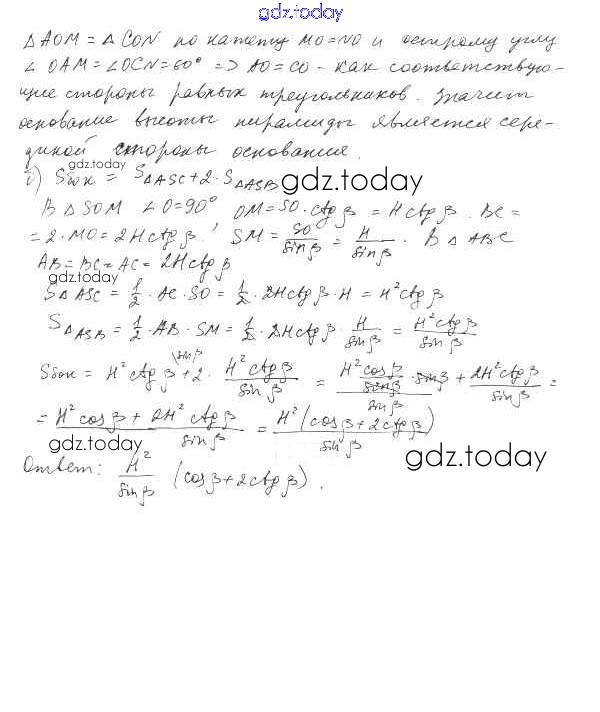 gdz.today
△AOM = △CON по катету MO=NO и острому углу
∠OAM=∠OCN=60° => AO=CO - как соответствую-
щие стороны равных треугольников. Значит
основание высоты пирамиды является сере-
диной стороны основания.
gdz.today
Sбок = S△ASC+2·S△ASB gdz.today
В △SOM ∠O=90° OM=SO·ctgβ = Hctgβ. BC=
=2·MO=2Hctgβ, SM= SO/sinβ = H/sinβ. В △ABC
AB=BC=AC= 2Hctgβ
gdz.today
S△ASC = 1/2·AC·SO = 1/2·2Hctgβ·H = H²ctgβ
S△ASB = 1/2·AB·SM = 1/2·2Hctgβ·H/sinβ = H²ctgβ/sinβ
Sбок = H²ctgβ + 2·H²ctgβ/sinβ = (H²cosβ/sinβ·sinβ)/sinβ + 2H²ctgβ/sinβ =
= (H²cosβ + 2H²ctgβ)/sinβ = H²(cosβ+2ctgβ)/sinβ
gdz.today gdz.today
Ответ: H²/sinβ (cosβ+2ctgβ).